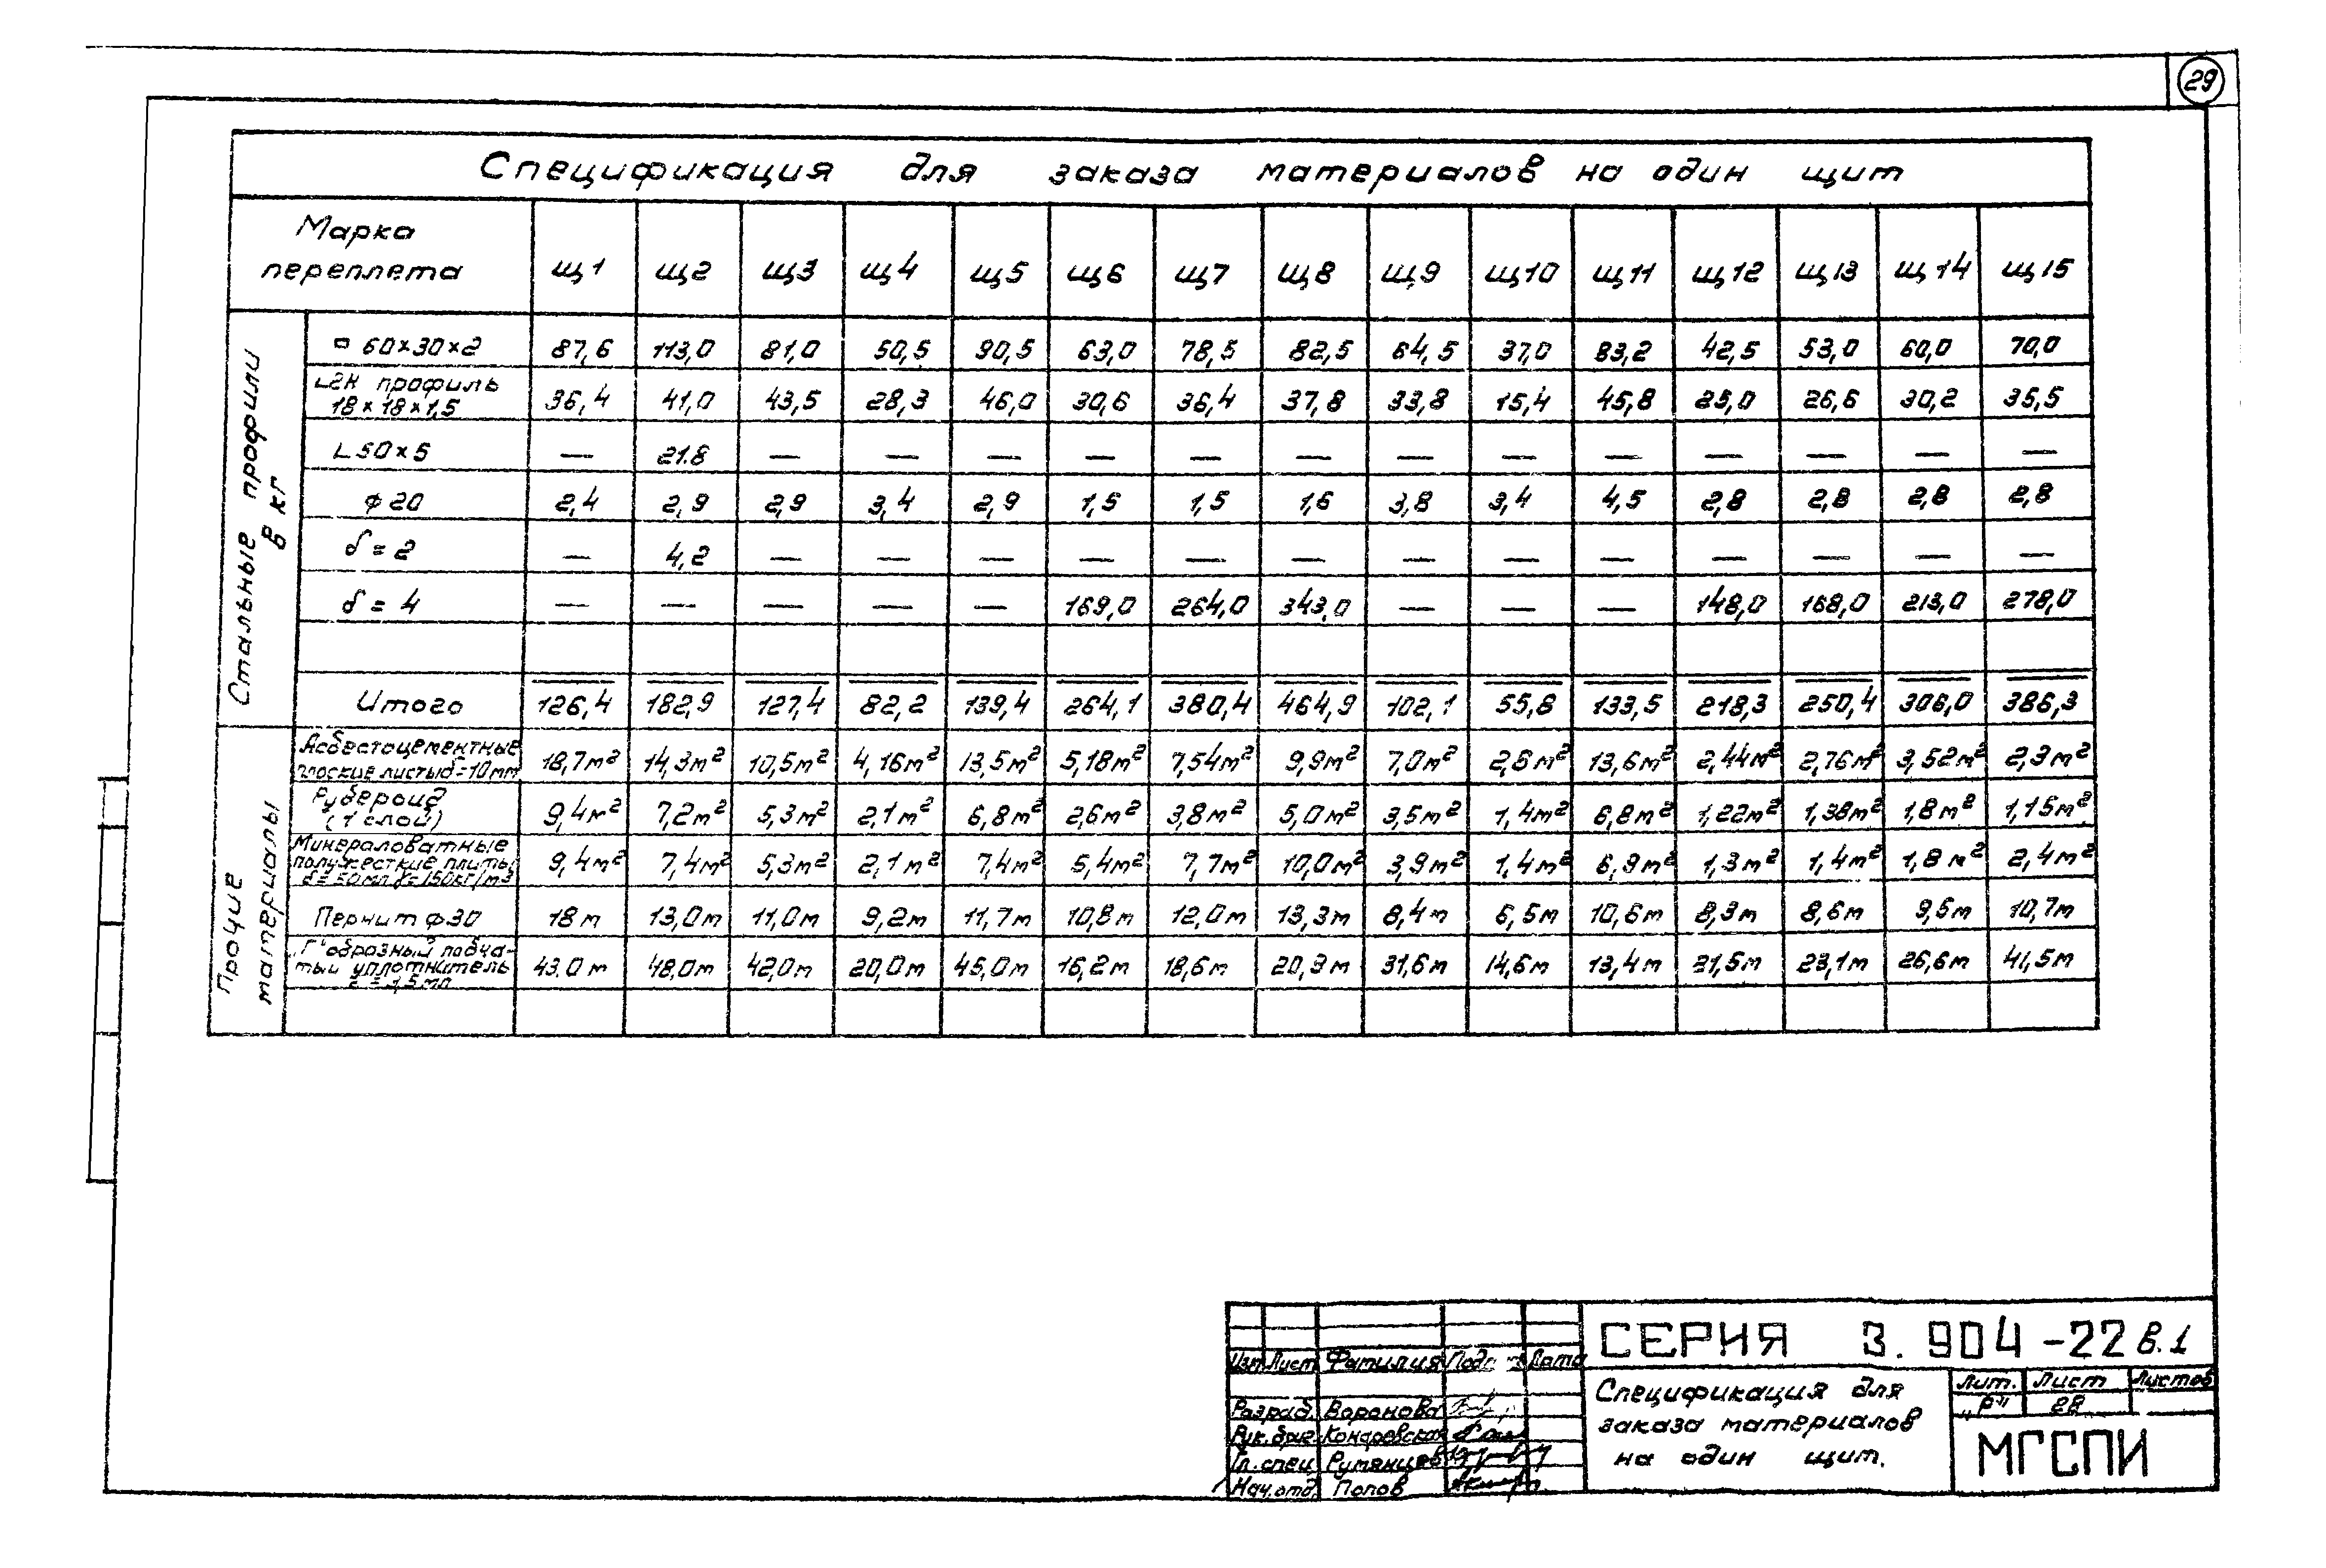 29
Спецификация для заказа материалов на один щит
Марка переплета Щ1 Щ2 Щ3 Щ4 Щ5 Щ6 Щ7 Щ8 Щ9 Щ10 Щ11 Щ12 Щ13 Щ14 Щ15
Стальные профили в кг
▫ 60×30×2 87,6 113,0 81,0 50,5 90,5 63,0 78,5 82,5 64,5 37,0 83,2 42,5 53,0 60,0 70,0
L2К профиль 18×18×1,5 36,4 41,0 43,5 28,3 46,0 30,6 36,4 37,8 33,8 15,4 45,8 25,0 26,6 30,2 35,5
L 50×5 — 21.8 — — — — — — — — — — — — —
ф 20 2,4 2,9 2,9 3,4 2,9 1,5 1,5 1,6 3,8 3,4 4,5 2,8 2,8 2,8 2,8
δ = 2 — 4,2 — — — — — — — — — — — — —
δ = 4 — — — — — 169,0 264,0 343,0 — — — 148,0 168,0 213,0 278,0
Итого 126,4 182,9 127,4 82,2 139,4 264,1 380,4 464,9 102,1 55,8 133,5 218,3 250,4 306,0 386,3
Прочие материалы
Асбестоцементные плоские листы δ=10мм 18,7м² 14,3м² 10,5м² 4,16м² 13,5м² 5,18м² 7,54м² 9,9м² 7,0м² 2,8м² 13,6м² 2,44м² 2,76м² 3,52м² 2,3м²
Рубероид (1 слой) 9,4м² 7,2м² 5,3м² 2,1м² 6,8м² 2,6м² 3,8м² 5,0м² 3,5м² 1,4м² 6,8м² 1,22м² 1,38м² 1,8м² 1,15м²
Минераловатные полужесткие плиты δ=50мм γ=150кг/м3 9,4м² 7,4м² 5,3м² 2,1м² 7,4м² 5,4м² 7,7м² 10,0м² 3,9м² 1,4м² 6,9м² 1,3м² 1,4м² 1,8м² 2,4м²
Пернит ф30 18м 13,0м 11,0м 9,2м 11,7м 10,8м 12,0м 13,3м 8,4м 6,5м 10,6м 8,3м 8,6м 9,5м 10,7м
„Г" образный губчатый уплотнитель 43.0м 48,0м 42,0м 20,0м 45,0м 16,2м 18,6м 20,9м 31,6м 14,6м 13,4м 21,5м 23,1м 26,6м 41,5м
СЕРИЯ 3.904-22 в.1
Изм Лист Фамилия Подпись Дата
Разраб. Воронова
Рук.бриг Комаровская
Гл.спец. Румянцев
Нач.отд. Попов
Спецификация для
заказа материалов
на один щит.
Лит. Лист Листов
„Р" 28
МГСПИ